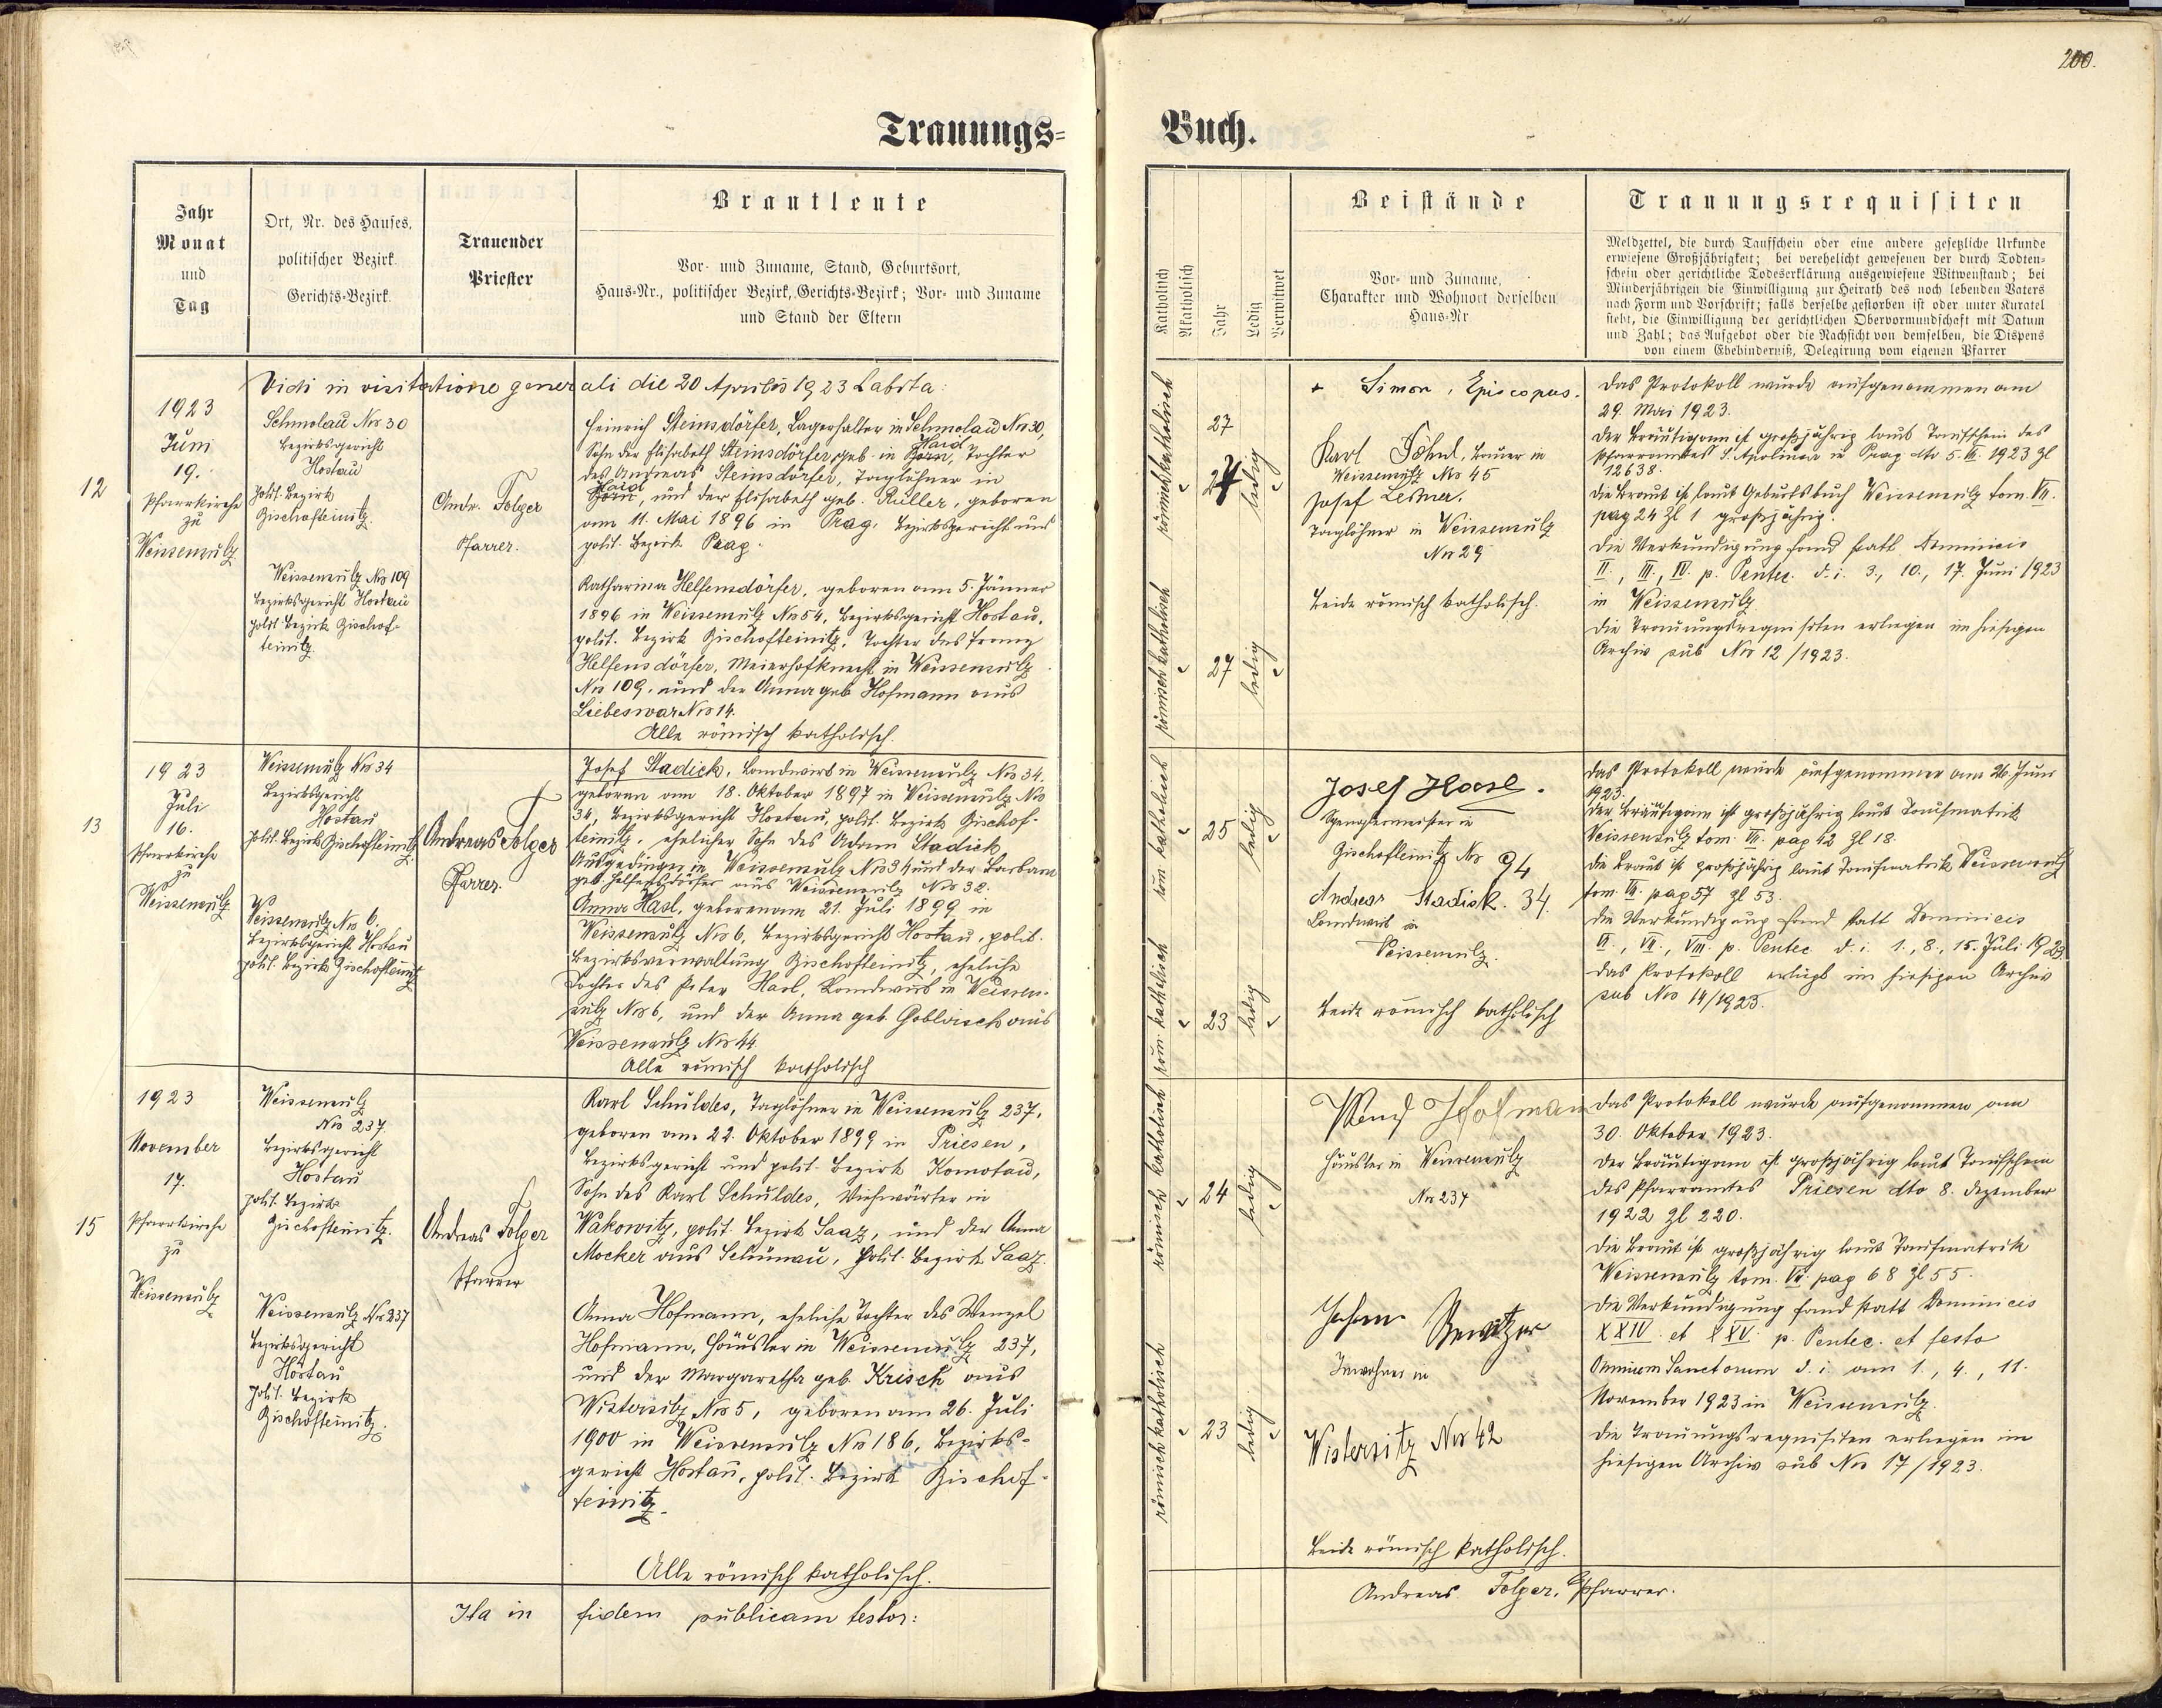 200.
Trauungs-
Buch.
Jahr
Monat
und
Tag
Ort, Nr. des Hauses,
politischer Bezirk
Gerichts-Bezirk.
Trauender
Priester
Brautleute
Vor- und Zuname, Stand, Geburtsort,
Haus-Nr., politischer Bezirk, Gerichts-Bezirk; Vor- und Zuname
und Stand der Eltern
Katholisch
Akatholisch
Jahr
Ledig
Verwitwet
Beistände
Vor- und Zuname,
Charakter und Wohnort derselben
Haus-Nr
Trauungsrequisiten
Meldzettel, die durch Taufschein oder eine andere gesetzliche Urkunde
erwiesene Großjährigkeit; bei verehelicht gewesenen der durch Todten-
schein oder gerichtliche Todeserklärung ausgewiesene Witwenstand; bei
Minderjährigen die Einwilligung zur Heirath des noch lebenden Vaters
nach Form und Vorschrift; falls derselbe gestorben ist oder unter Kuratel
steht, die Einwilligung der gerichtlichen Obervormundschaft mit Datum
und Zahl; das Aufgebot oder die Nachsicht von demselben, die Dispens
von einem Ehehinderniß, Delegirung vom eigenen Pfarrer
Vidi in visitatione generali die 20 Aprilis 1923 Labita:
+ Simon, Episcopus.
12
1923
Juni
19.
Pfarrkirche
zu
Weissensulz
Schmolau Nro 30
Bezirksgericht
Hostau
polit. Bezirk
Bischofteinitz.
Weissensulz Nro 109
Bezirksgericht Hostau
polit Bezirk Bischof-
teinitz
Andr. Folger
Pfarrer.
Heinrich Steinsdörfer, Lagerhalter in Schmolau Nro 30,
Haid
Sohn der Elisabeth Steinsdörfer, geb. in Tochter
des Andreas Steinsdörfer, Taglöhner in
Haid
und der Elisabeth geb. Rüller, geboren
am 11. Mai 1896 in Prag, Bezirksgericht und
polit. Bezirk Prag.
Katharina Helfensdörfer, geboren am 5 Jänner
1896 in Weissensulz Nro 54, Bezirksgericht Hostau,
polit. Bezirk Bischofteinitz, Tochter des Franz
Helfensdörfer, Meierhofknecht in Weissensulz
Nro 109, und der Anna geb Hofmann aus
Liebeswar Nro 14.
Alle römisch katholisch.
römisch katholisch
27
24
ledig
römisch katholisch
27
ledig
Karl Bauer in
Weissensulz Nro 45
Josef Lesner,
Taglöhner in Weissensulz
Nro 29
Beide römisch katholisch.
Das Protokoll wurde aufgenommen am
29. Mai 1923.
Der Bräutigam ist großjährig laut Taufschein des
Pfarramtes S. Apolinar in Prag dto 5. VI. 1923 Zl
12638.
Die Braut ist laut Geburtsbuch Weissensulz tom. VII.
pag 24 Zl 1 großjährig.
Die Verkündigung fand statt Dominicis
II., III., IV. p. Pentec. d. i. 3., 10., 17. Juni 1923
in Weissensulz
Die Trauungsrequisiten erliegen im hiesigen
Archiv sub Nro 12/1923.
13
1923
Juli
16.
Pfarrkirche
zu
Weissensulz
Weissensulz Nro 34
Bezirksgericht
Hostau
polit. Bezirk Bischofteinitz
Weissensulz Nro 6.
Bezirksgericht Hostau
polit. Bezirk Bischofteinitz
Andreas Folger
Pfarrer.
Josef Stadick, Landwirt in Weissensulz Nro 34.
geboren am 18. Oktober 1897 in Weissensulz Nro
34, Bezirksgericht Hostau, polit. Bezirk Bischof-
teinitz, ehelicher Sohn des Adam Stadick,
Ausgedinger in Weissensulz Nro 34 und der Barbara
geb. Helfensdörfer aus Weissensulz Nro 32.
Anna Hasl, geboren am 21. Juli 1899 in
Weissensulz Nro 6, Bezirksgericht Hostau, polit.
Bezirksverwaltung Bischofteinitz, eheliche
Tochter des Peter Hasl, Landwirt in Weissen-
sulz Nro 6, und der Anna geb. aus
Weissensulz Nro 44
Alle römisch katholisch
röm katholisch
25
ledig
röm. katholisch
23
ledig
Josef Hasl.
Spenglermeister in
Bischofteinitz Nro 94
Andreas Stadick. 34.
Landwirt in
Weissensulz.
Beide römisch katholisch
Das Protokoll wurde aufgenommen am 26. Juni
1923.
Der Bräutigam ist großjährig laut Taufmatrik
Weissensulz tom. VII. pag 42 Zl 18.
Die Braut ist großjährig laut Taufmatrik Weissensulz
tom. VII. pag 57 Zl 53.
Die Verkündigung fand statt Dominicis
VI., VII., VIII. p. Pentec d. i. 1., 8., 15. Juli 1923.
Das Protokoll erliegt im hiesigen Archiv
sub Nro 14/1923.
15
1923
November
17.
Pfarrkirche
zu
Weissensulz
Weissensulz
Nro 237
Bezirksgericht
Hostau
polit. Bezirk
Bischofteinitz.
Weissensulz Nr 237
Bezirksgericht
Hostau
polit. Bezirk
Bischofteinitz.
Andreas Folger
Pfarrer
Karl Schuldes, Taglöhner in Weissensulz 237,
geboren am 22. Oktober 1899 in Priesen,
Bezirksgericht und polit. Bezirk Komotau,
Sohn des Karl Schuldes, Viehwärter in
Wakowitz, polit. Bezirk Saaz, und der Anna
Mocker aus Schünau, polit. Bezirk Saaz.
Anna Hofmann, eheliche Tochter des Wenzel
Hofmann, Häusler in Weissensulz 237,
und der Margaretha geb. Krisch aus
Wistersitz Nro 5, geboren am 26. Juli
1900 in Weissensulz Nro 186, Bezirks-
gericht Hostau, polit. Bezirk Bischof-
teinitz.
Alle römisch katholisch.
römisch katholisch
24
ledig
römisch katholisch
23
ledig
Wenz Hofman
Häusler in Weissensulz
Nr 237
Johann
Inwohner in
Wistersitz Nro 42
Beide römisch katholisch.
Das Protokoll wurde aufgenommen am
30. Oktober 1923.
Der Bräutigam ist großjährig laut Taufschein
des Pfarramtes Priesen dto 8. Dezember
1922 Zl 220.
Die Braut ist großjährig laut Taufmatrik
Weissensulz tom. VII. pag 68 Zl 55.
Die Verkündigung fand statt Dominicis
XXIV. et XXV. p. Pentec. et festo
Omnium Sanctorum d. i. am 1., 4., 11.
November 1923 in Weissensulz.
Die Trauungsrequisiten erliegen im
hiesigen Archiv sub Nro 17/1923.
Ita in fidem publicam testor:
Andreas Folger, Pfarrer.